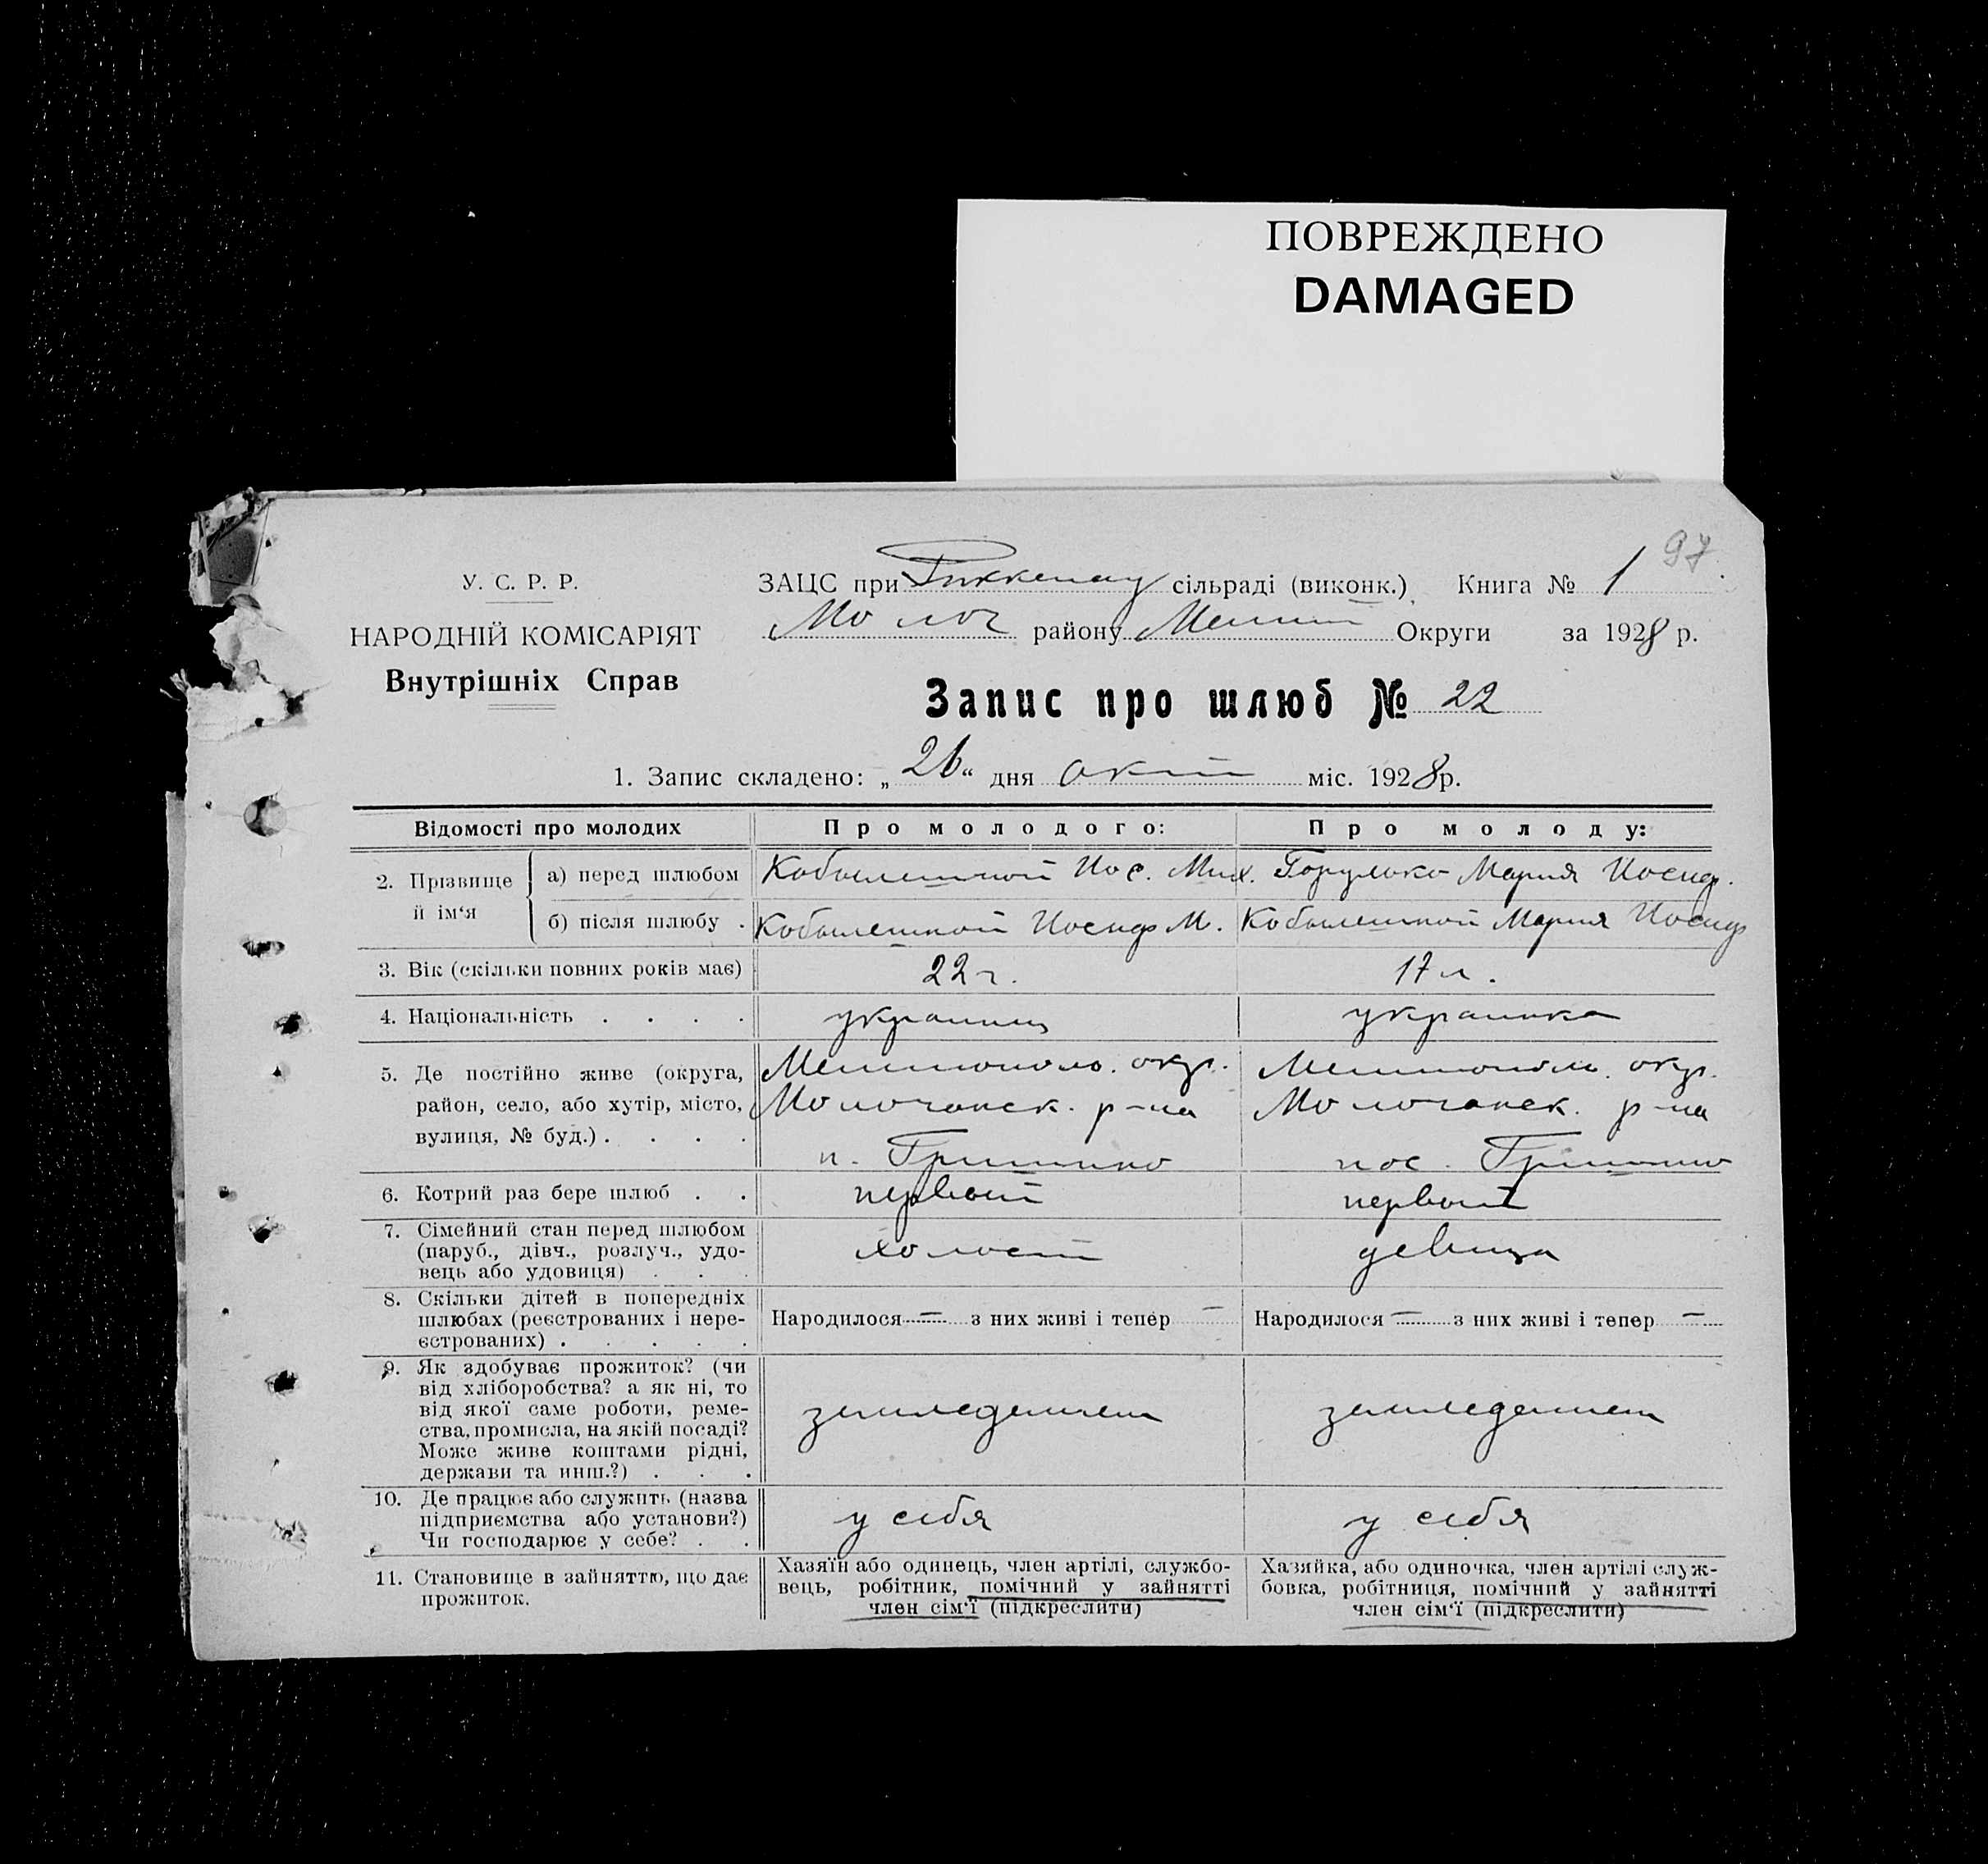 ПОВРЕЖДЕНО
DAMAGED
97
У. С. Р. Р.
НАРОДНІЙ КОМІСАРІЯТ
Внутрішніх Справ
ЗАЦС при Риккенау сільраді (виконк.) Книга № 1
Молоч району Мелит Округи за 1928 р.
Запис про шлюб № 22
1. Запис складено: „26“ дня окт міс. 1928 р.
Відомості про молодих Про молодого: Про молоду:
2. Прізвище й ім‘я
а) перед шлюбом Иос. Мих. Мария Иосиф.
б) після шлюбу . Иосиф М. Мария Иосиф
3. Вік (скільки повних років має) 22 г. 17 л.
4. Національність . . . . украинец украинка
5. Де постійно живе (округа, Мелитополь. окр. Мелитополь. окр.
район, село, або хутір, місто, Молочанск. р-на Молочанск. р-на
вулиця, № буд.) . . . .
п. Гришино пос. Гришино
6. Котрий раз бере шлюб . . первый первый
7. Сімейний стан перед шлюбом
(паруб., дівч., розлуч., удо- холост девица
вець або удовиця) . . .
8. Скільки дітей в попередніх
шлюбах (реєстрованих і нере- Народилося — з них живі і тепер — Народилося — з них живі і тепер —
єстрованих) . . . . .
9. Як здобуває прожиток? (чи
від хліборобства? а як ні, то
від якої саме роботи, реме-
ства, промисла, на якій посаді?
Може живе коштами рідні,
держави та инш.?) . . .
10. Де працює або служить (назва
підприємства або установи?) у себя у себя
Чи господарює у себе? . .
11. Становище в зайняттю, що дає
прожиток.
Хазяїн або одинець, член артілі, службо-
вець, робітник, помічний у зайнятті
член сім‘ї (підкреслити)
Хазяйка, або одиночка, член артілі служ-
бовка, робітниця, помічний у зайнятті
член сім‘ї (підкреслити)